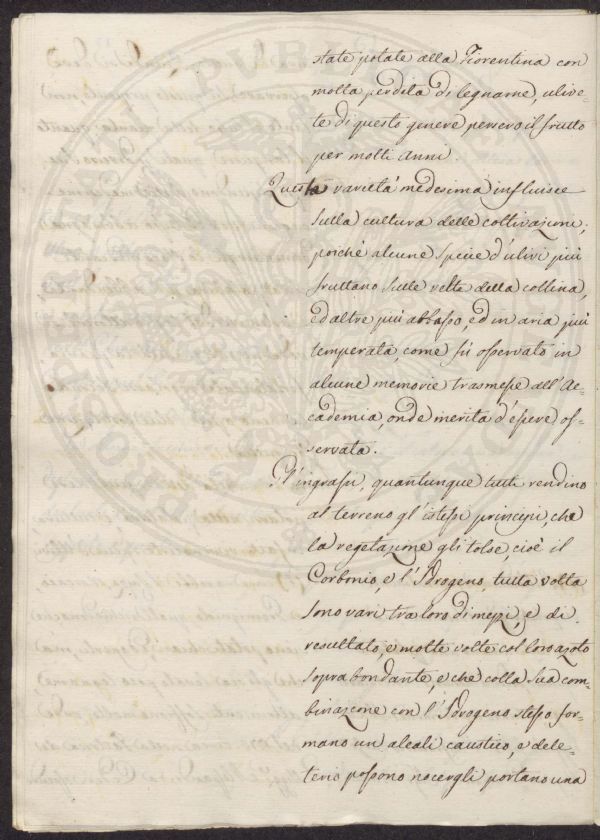 state potate alla Fiorentina con
molta perdita di legname, ulive-
te di questo genere persero il frutto
per molti anni.
Questa varietá medesima influisce
sulla cultura delle coltivazioni,
poichè alcune specie d'ulivi piú
fruttano sulle vette della collina,
ed altre piú abbasso, ed in aria piú
temperata, come fú osservato in
alcune memorie trasmesse all'Ac-
cademia, onde merita d'essere os-
servata.
Gl'ingrassi, quantunque tutti rendino
al terreno gl'istessi principj, che
la vegetazione gli tolse, cioè il
Carbonio, e l'Idrogeno, tutta volta
sono vari tra loro di mezzi, e di
resultato, e molte volte col loro azoto
soprabondante, e che colla sua com-
binazione con l'Idrogeno stesso for-
mano un alcali caustico, e dele-
terio possono nocergli portano una